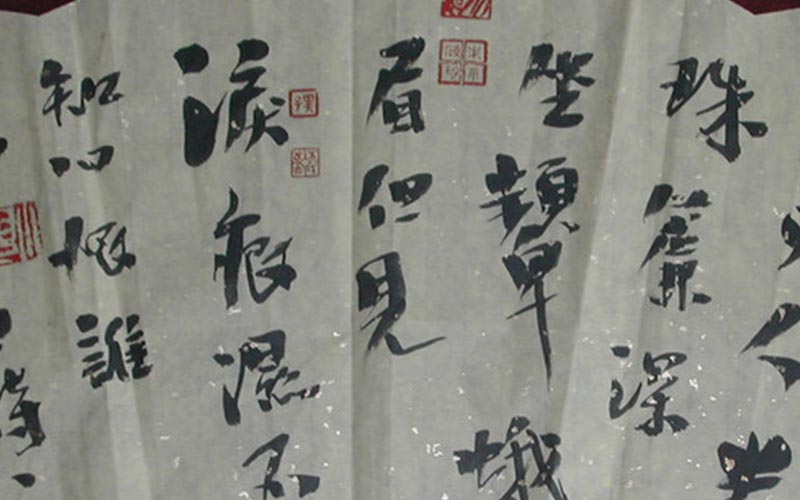 人
珠簾深
坐顰蛾
眉但見
淚痕濕不
知心恨誰